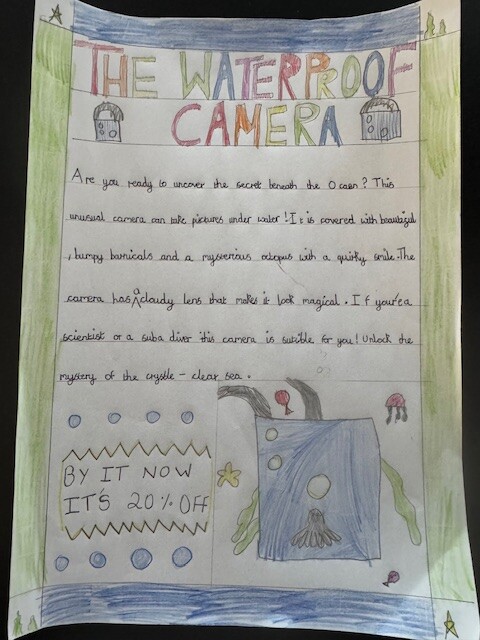 THE WATERPROOF
CAMERA
Are you ready to uncover the secret beneath the Ocean? This
unusual camera can take pictures under water! It is covered with beautiful
, bumpy barnicals and a mysterious octopus with a quirky smile. The
camera has a cloudy lens that makes it look magical. If you'r'e a
scientist or a suba diver this camera is sutible for you! Unlock the
mystery of the crystle - clear sea.
BY IT NOW
IT'S 20% OFF